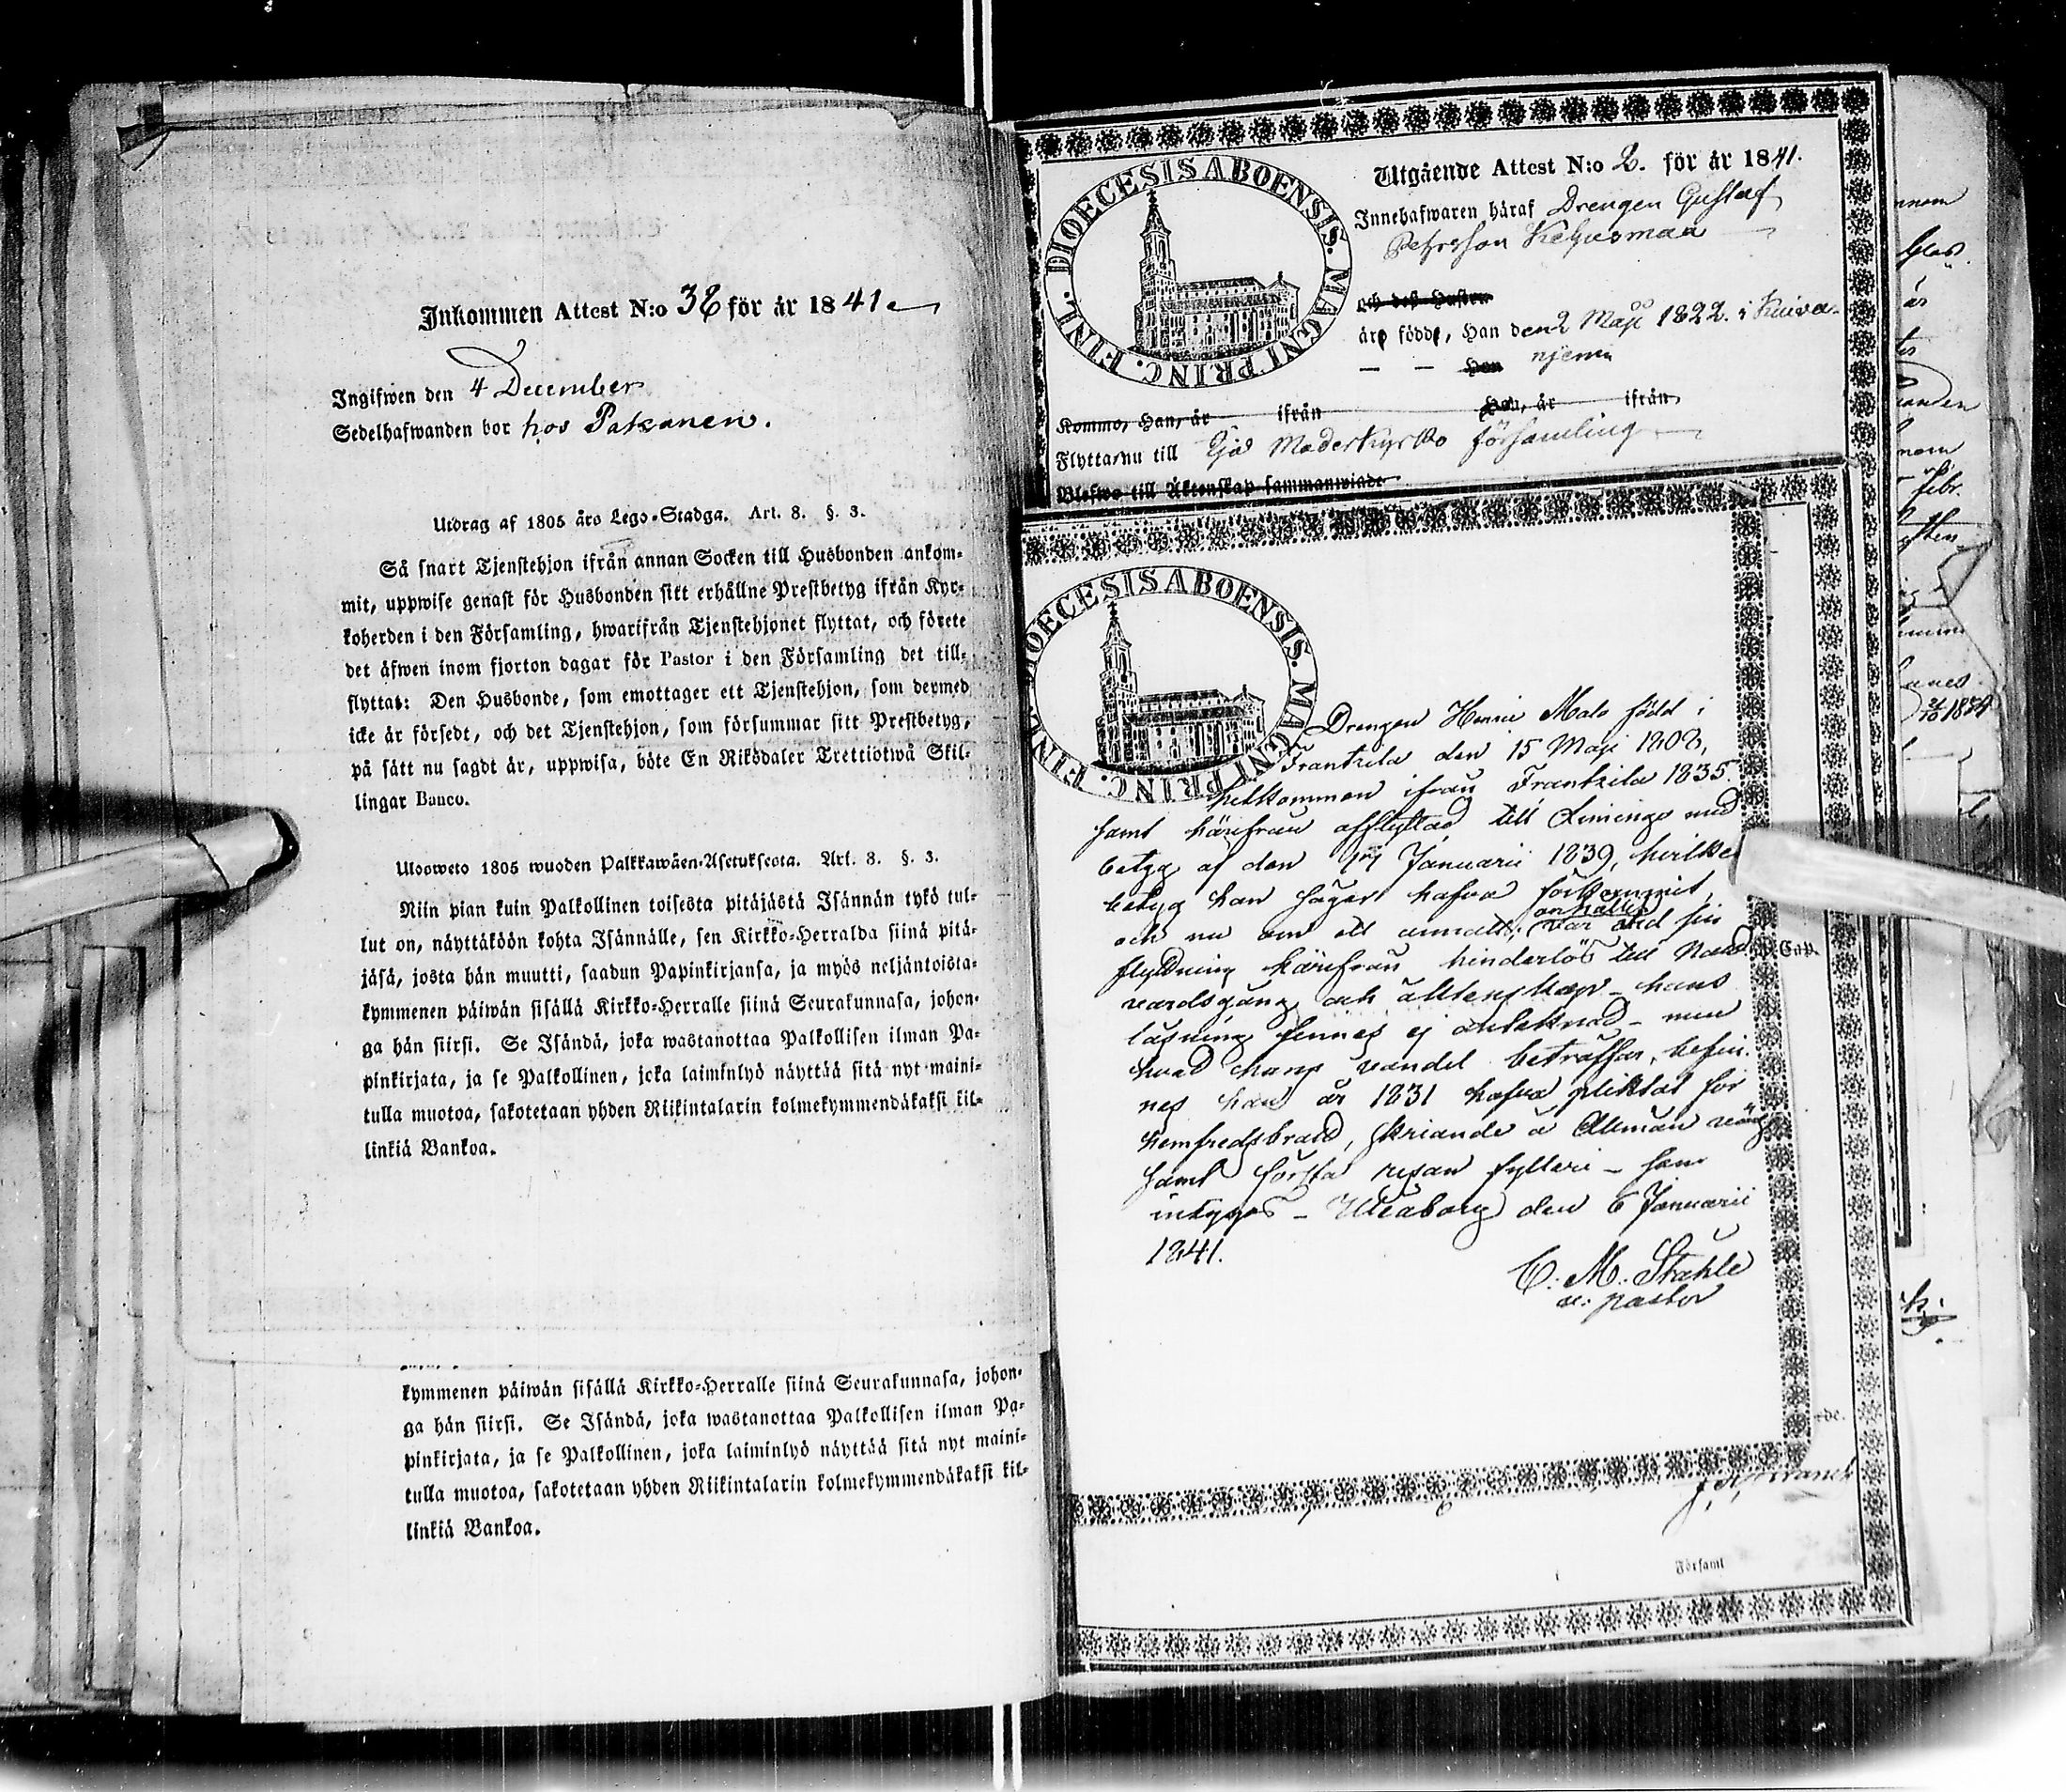 Inkommen Attest N:o 38 för år 1841
Ingifwen den 4 December
Sedelhafwanden bor hos Pakanen.
Utdrag af 1805 års Lego-Stadga. Art. 8. §. 3.
Så snart Tjenstehjon ifrån annan Socken till Husbonden ankom-
mit, uppwise genast för Husbonden sitt erhållne Prestbetyg ifrån Kyr-
koherden i den Församling, hwarifrån Tjenstehjonet flyttat, och förete
det äfwen inom fjorton dagar för Pastor i den Församling det till-
flyttat: Den Husbonde, som emottager ett Tjenstehjon, som dermed
icke är försedt, och det Tjenstehjon, som försummar sitt Prestbetyg,
på sätt nu sagdt är, uppwisa, böte En Riksdaler Trettiotwå Skil-
lingar Banco.
Uloosweto 1805 wuoden Palkkawäen-Asetuksesta. Art. 8. §. 3.
Niin pian kuin Palkollinen toisesta pitäjästä Isännän tykö tul-
lut on, näyttäköön kohta Isännälle, sen Kirkko-Herralda siinä pitä-
jäsä, josta hän muutti, saadun Papinkirjansa, ja myös neljäntoista-
kymmenen päiwän sisällä Kirkko-Herralle siinä Seurakunnasa, johon-
ga hän siirsi. Se Isändä, joka wastanottaa Palkollisen ilman Pa-
pinkirjata, ja se Palkollinen, joka laiminlyö näyttää sitä nyt maini-
tulla muotoa, sakotetaan yhden Riikintalarin kolmekymmendäkaksi kil-
linkiä Bankoa.
kymmenen päiwän sisällä Kirkko-Herralle siinä Seurakunnasa, johon-
ga hän siirsi. Se Isändä, joka wastanottaa Palkollisen ilman Pa-
pinkirjata, ja se Palkollinen, joka laiminlyö näyttää sitä nyt maini-
tulla muotoa, sakotetaan yhden Riikintalarin kolmekymmendäkaksi kil-
linkiä Bankoa.
DIOECESIS ABOENSIS. MAGNI PRINC. FINL.
Utgående Attest N:o 2. för år 1841.
Innehafwaren häraf Drengen Gustaf
Petersson Kehusmaa
och dess Hustru
äro födde, Han den 2 Maji 1822. i Kuiva-
Hon njemi
Kommo, Han, år ifrån Hon, år ifrån
Flytta nu till Ijo Moderkyrko församling
Blefwo till Äktenskap sammanwigde
DIOECESIS ABOENSIS. MAGNI PRINC. FINL.
Drengen Henric Malo född i
Frantzila den 15 Maji 1808,
hitkommen ifrån Frantzila 1835.
samt härifrån afflyttad till Limingo med
betyg af den 17 Januarii 1839, hvilket
betyg han säger hafva förkommit,
och nu om ett annat anhåller, var vid sin
flyttning härifrån hinderlös till Natt-
vardsgång och äktenskap - hans
läsning finnes ej antecknad - men
hvad hans vandel beträffar, befin-
nes han år 1831 hafva pliktat för
hemfredsbrott, skriande å Allmän väg
samt första resan fylleri - som
intygas - Uleåborg den 6 Januarii
1841.
C. M. Ståhle
v. pastor
Cap.
-de.
Församl